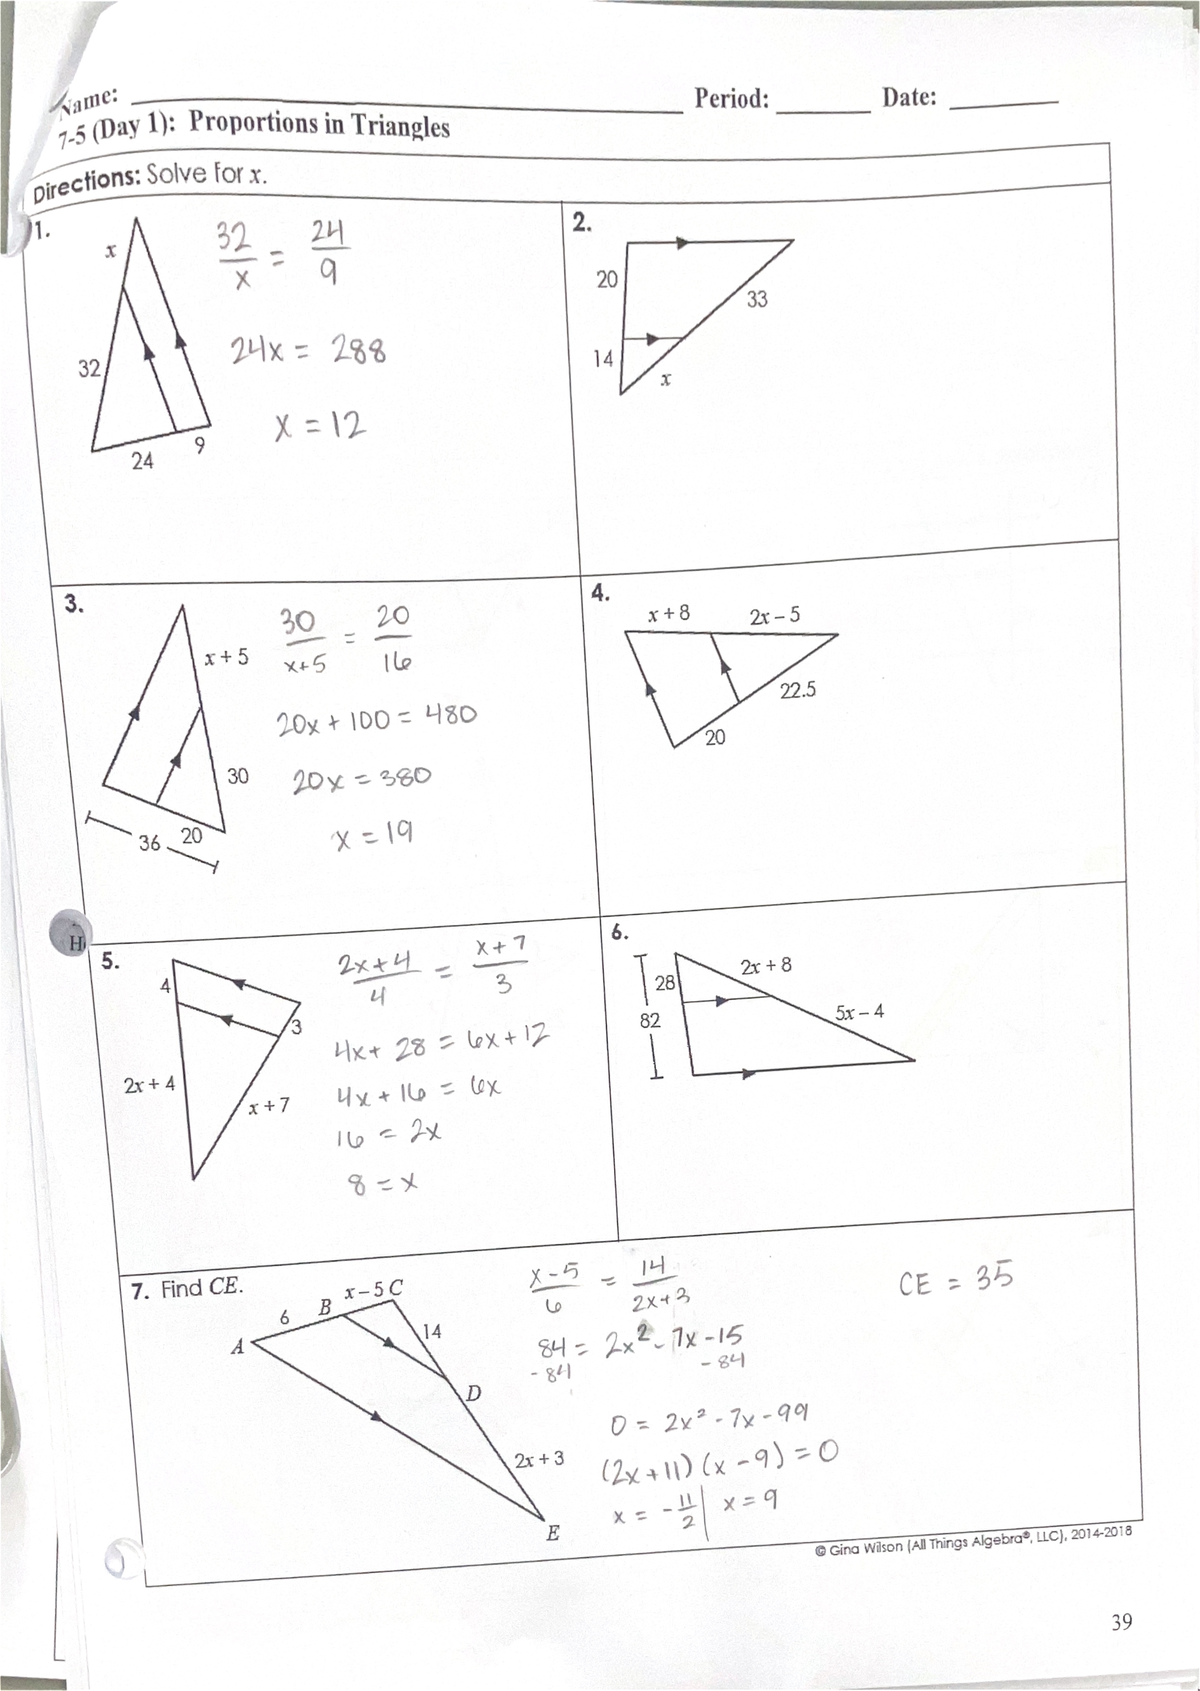 Name: Period: Date:
7-5 (Day 1): Proportions in Triangles
Directions: Solve for x.
1.
x
32
24
9
32/x = 24/9
24x = 288
x = 12
2.
20
14
33
x
3.
x + 5
30
36
20
30/x+5 = 20/16
20x + 100 = 480
20x = 380
x = 19
4.
x + 8
2x – 5
22.5
20
H
5.
4
3
2x + 4
x + 7
2x+4/4 = x+7/3
4x + 28 = 6x + 12
4x + 16 = 6x
16 = 2x
8 = x
6.
28
82
2x + 8
5x – 4
7. Find CE.
A
6
B
x – 5
C
14
D
2x + 3
E
x-5/6 = 14/2x+3
84 = 2x² - 7x - 15
-84 -84
0 = 2x² - 7x - 99
(2x + 11)(x - 9) = 0
x = -11/2 | x = 9
CE = 35
© Gina Wilson (All Things Algebra®, LLC), 2014-2018
39